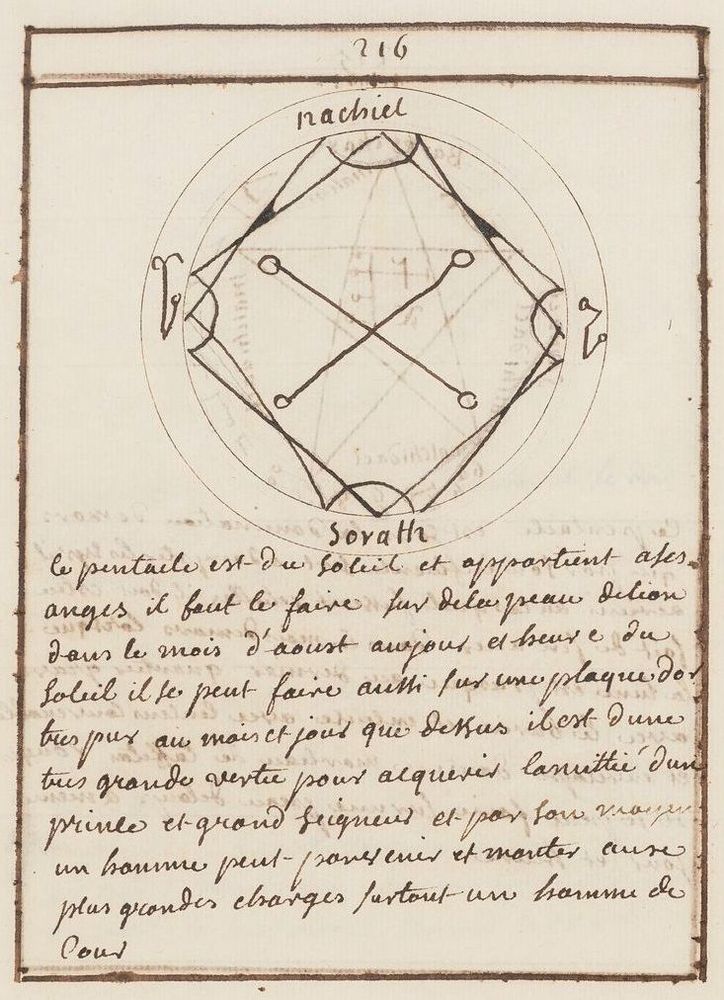 216
nachiel
Sorath
Ce pentacle est du Soleil et appartient a ses
anges il faut le faire sur dela peau delion
dans le mois d'aoust aujour et heure du
Soleil il se peut faire aussi sur une plaque dor
tres pur au mois et jour que dessus il est dune
tres grande vertu pour acquerir lamittié dun
prince et grand Seigneur et par son moyen
un homme peut parvenir et monter aux
plus grandes charges surtout un homme de
Cour